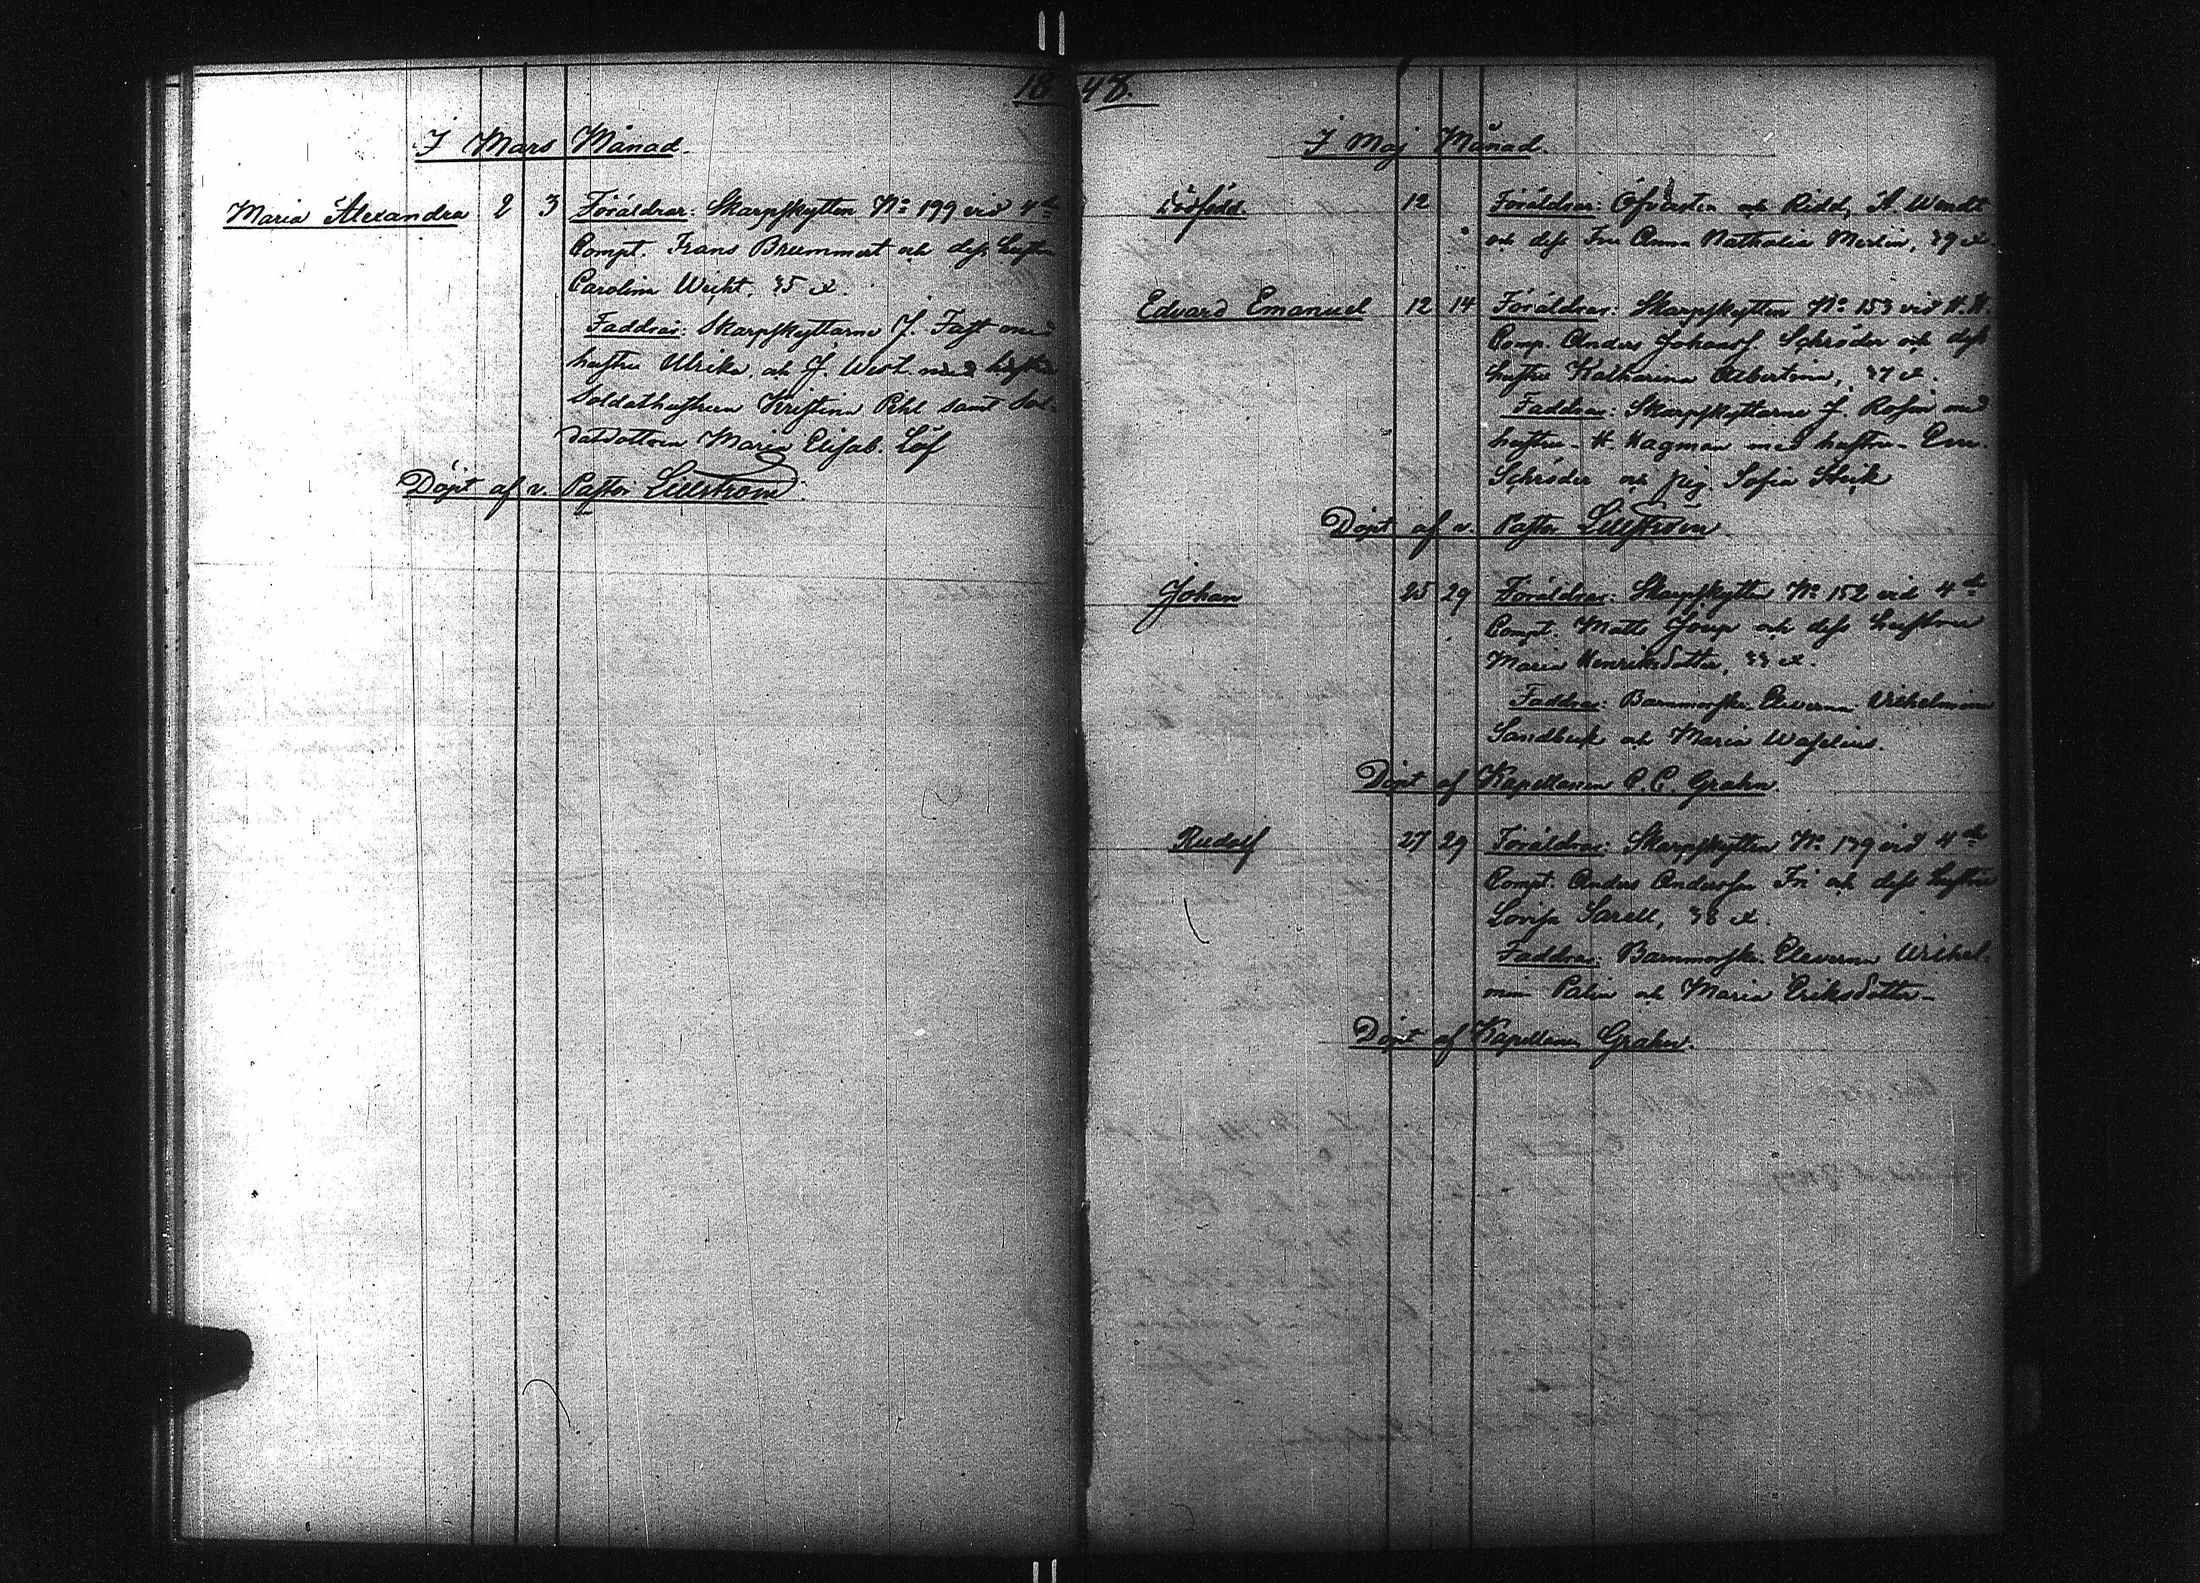 1848.
I Mars Månad.
Maria Alexandra 2 3 Föräldrar: Skarpskytten No 199 vid 4de
Compt. Frans Brummert och dess hustru
Carolina Wicht, 35 år.
Faddrar: Skarpskyttarne J. Fast med
hustru Ulrika, och J. West med hustru
Soldathustrun Kristina Pihl samt Sol-
datdottern Maria Elisab. Löf
Döpt af v. Pastor Lillström.
I Maj Månad.
Dödfödd. 12 Föräldrar: Öfversten och Ridd. A. Wendt
och dess Fru Anna Nathalia Merlin, 39 år.
Edvard Emanuel 12 14 Föräldrar: Skarpskytten No 153 vid
Comp. Anders Johanss. Schröder och dess
hustru Katharina Albertina, 37 år.
Faddrar: Skarpskyttarne J. Rosin med
hustru - H. Hagman med hustru -
Schröder och pig. Sofia
Döpt af v. Pastor Lillström
Johan 25 29 Föräldrar: Skarpskytten No 152 vid 4de
Compt. Matts och dess hustru
Maria Henriksdotter, 33 år.
Faddrar: Barnmorske Eleverna Vilhelmina
Sandbeck och Maria Waselius.
Döpt af Kapellanen C. C. Grahn.
Rudolf 27 29 Föräldrar: Skarpskytten No 139 vid 4de
Compt. Anders Andersson Fri och dess hustru
Lovisa Sarell, 38 år.
Faddrar: Barnmorske. Eleverna Wilhel-
mina Palin och Maria Eriksdotter -
Döpt af Kapellanen Grahn.